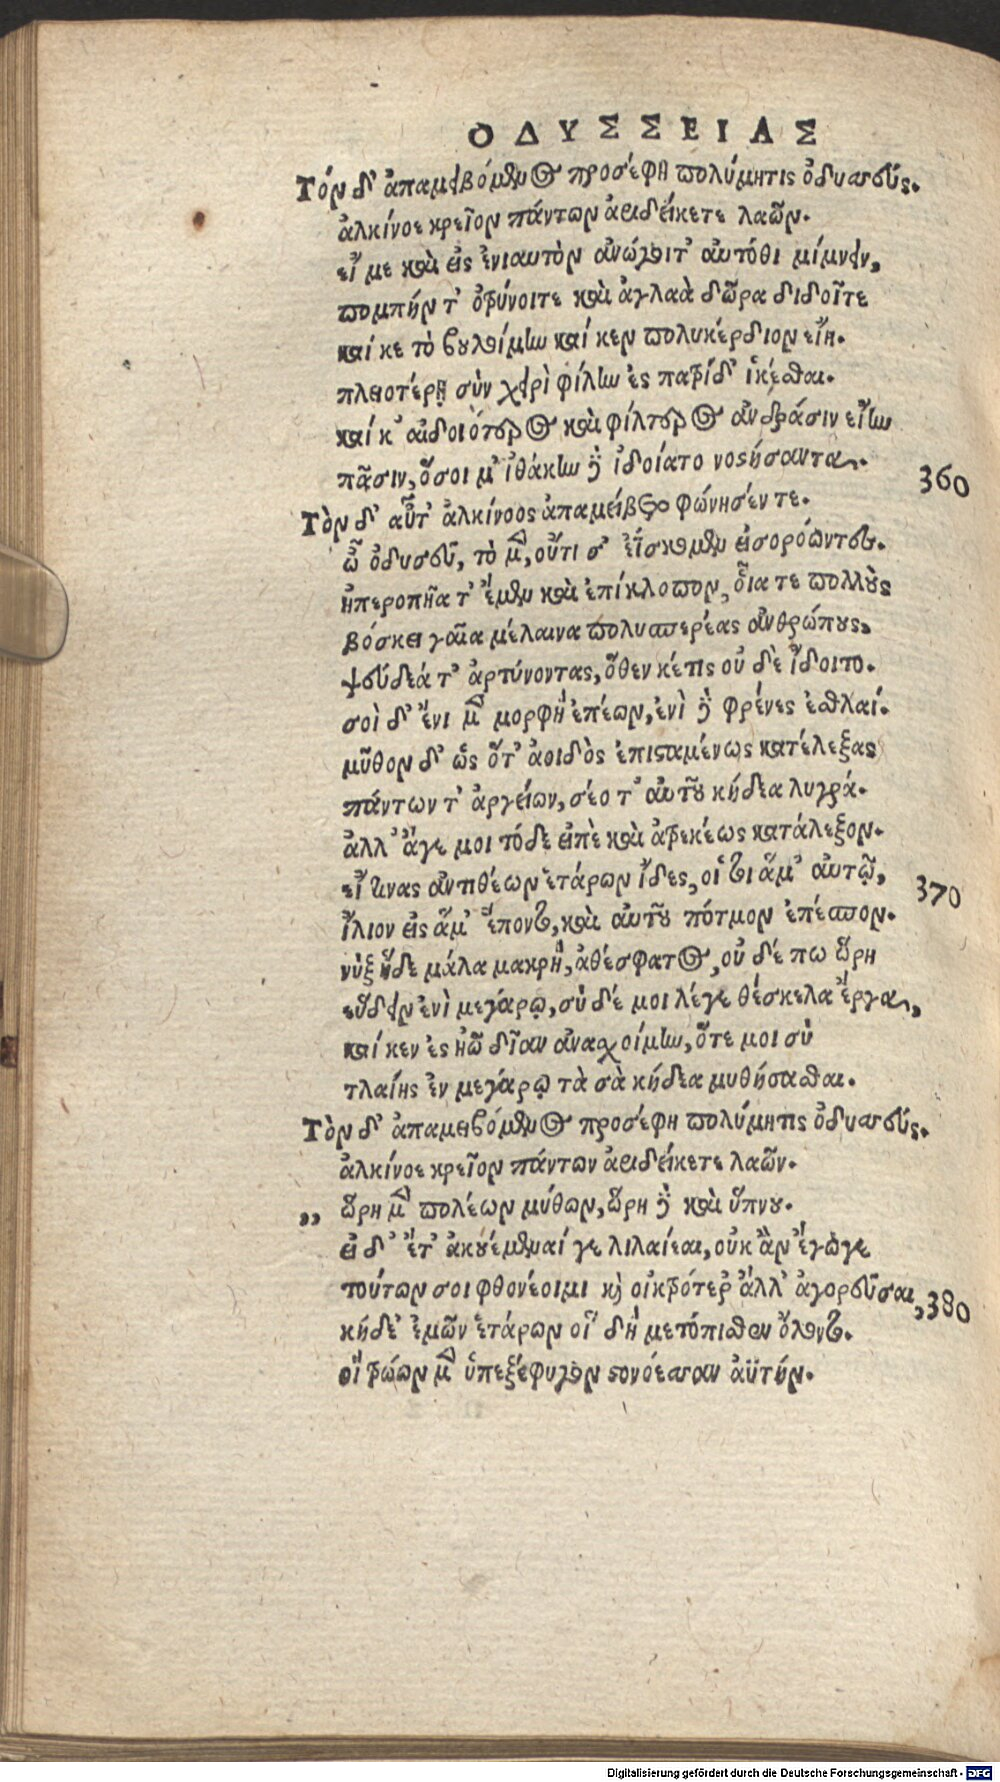 ΟΔΥΣΣΕΙΑΣ
Τόν δ' ἀπαμειβόμενος προσέφη πολύμητις ὀδυσσεύς.
ἀλκίνοε κρεῖον πάντων ἀριδείκετε λαῶν.
εἴ με καὶ εἰς ἐνιαυτὸν ἀνώγοιτ' αὐτόθι μίμνειν,
πομπήν τ' ὀτρύνοιτε καὶ ἀγλαὰ δῶρα διδοῖτε
καί κε τὸ βουλοίμην καί κεν πολυκέρδιον εἴη.
πλειοτέρῃ σὺν χειρὶ φίλην ἐς πατρίδ' ἱκέσθαι.
καί κ' αἰδοιότερος καὶ φίλτερος ἀνδράσιν εἴην
πᾶσιν, ὅσοι μ' ἰθάκην δὲ ἰδοίατο νοστήσαντα.
360
Τὸν δ' αὖτ' ἀλκίνοος ἀπαμείβετο φώνησέν τε.
ὦ ὀδυσεῦ, τὸ μὲν, οὔτι σ' ἐΐσκομεν εἰσορόωντες.
ἠπεροπῆα τ' ἔμεν καὶ ἐπίκλοπον, οἷα τε πολλοὺς
βόσκει γαῖα μέλαινα πολυσπερέας ἀνθρώπους,
ψεύδεά τ' ἀρτύνοντας, ὅθεν κέ τις οὐ δὲ ἴδοιτο.
σοὶ δ' ἔνι μὲν μορφὴ ἐπέων, ἐνὶ δὲ φρένες ἐσθλαί.
μῦθον δ' ὡς ὅτ' ἀοιδὸς ἐπισταμένως κατέλεξας
πάντων τ' ἀργείων, σέο τ' αὐτοῦ κήδεα λυγρά.
ἀλλ' ἄγε μοι τόδε εἰπὲ καὶ ἀτρεκέως κατάλεξον.
εἴ τινας ἀντιθέων ἑτάρων ἴδες, οἵ τοι ἅμ' αὐτῷ,
370
ἴλιον εἰς ἅμ' ἕποντο, καὶ αὐτοῦ πότμον ἐπέσπον.
νὺξ ἥδε μάλα μακρὴ, ἀθέσφατος, οὐ δέ πω ὥρη
εὕδειν ἐνὶ μεγάρῳ, σὺ δέ μοι λέγε θέσκελα ἔργα,
καί κεν ἐς ἠῶ δῖαν ἀνασχοίμην, ὅτε μοι σὺ
τλαίης ἐν μεγάρῳ τὰ σὰ κήδεα μυθήσασθαι.
Τὸν δ' ἀπαμειβόμενος προσέφη πολύμητις ὀδυσσεύς.
ἀλκίνοε κρεῖον πάντων ἀριδείκετε λαῶν.
,, ὥρη μὲν πολέων μύθων, ὥρη δὲ καὶ ὕπνου.
εἰ δ' ἔτ' ἀκουέμεναί γε λιλαίεαι, οὐκ ἂν ἔγωγε
τούτων σοι φθονέοιμι καὶ οἰκτρότερ' ἄλλ' ἀγορεῦσαι,
380
κήδε' ἐμῶν ἑτάρων οἳ δὴ μετόπισθεν ὄλοντο.
οἳ τρώων μὲν ὑπεξέφυγον στονόεσσαν ἀϋτήν.
Digitalisierung gefördert durch die Deutsche Forschungsgemeinschaft - DFG